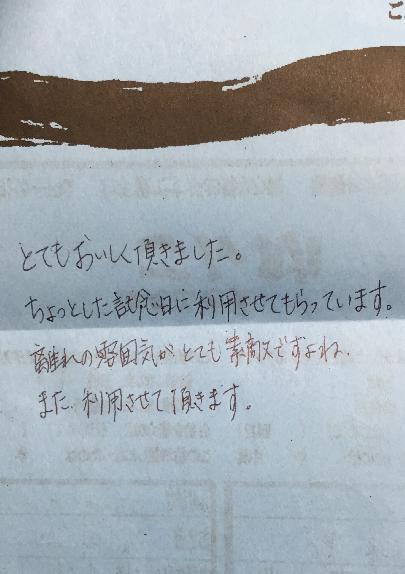 こ
とてもおいしく頂きました。
ちょっとした記念日に利用させてもらっています。
離れの雰囲気がとても素敵ですよね。
また、利用させて頂きます。